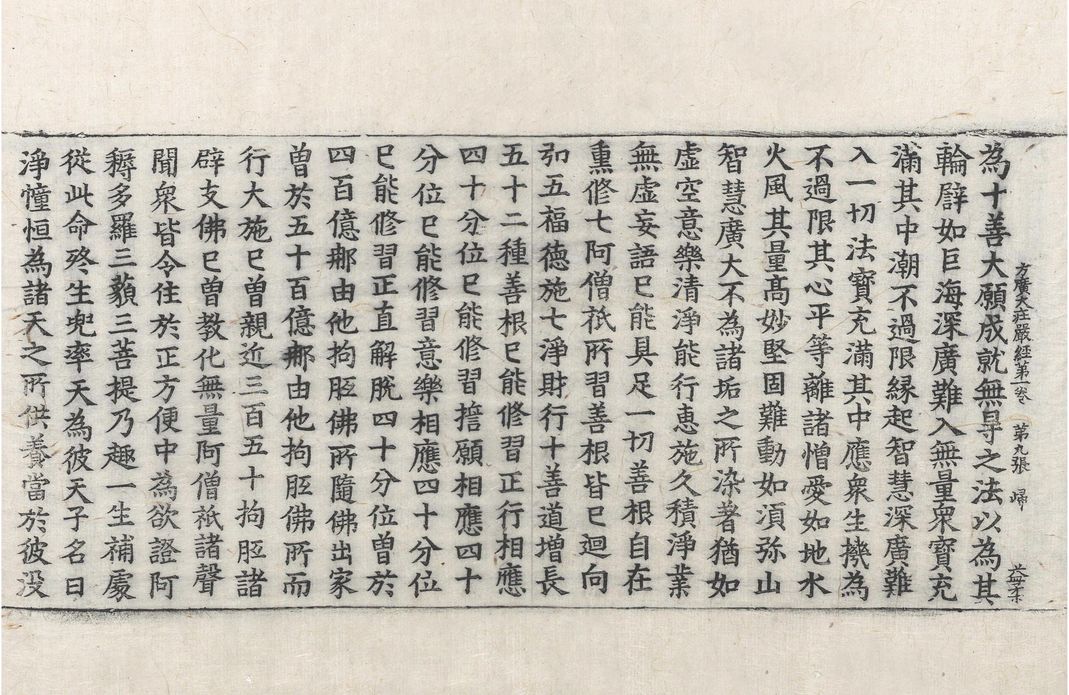 方廣大莊嚴經第一卷 第九張 歸
為十善大願成就無㝵之法以為其
輪譬如巨海深廣難入無量衆寳充
滿其中潮不過限縁起智慧深廣難
入一切法寳充滿其中應衆生機為
不過限其心平等離諸憎愛如地水
火風其量髙妙堅固難動如湏弥山
智慧廣大不為諸垢之所染著猶如
虛空意樂清淨能行惠施久積淨業
無虛妄語已能具足一切善根自在
熏修七阿僧祇所習善根皆已迴向
弘五福德施七淨財行十善道增長
五十二種善根已能修習正行相應
四十分位已能修習誓願相應四十
分位已能修習意樂相應四十分位
已能修習正直解脫四十分位曽於
四百億那由他拘胝佛所隨佛出家
曽於五十百億那由他拘胝佛所而
行大施已曽親近三百五十拘胝諸
辟支佛已曽教化無量阿僧祇諸聲
聞衆皆令住於正方便中為欲證阿
耨多羅三藐三菩提乃趣一生補處
從此命終生兜率天為彼天子名曰
淨幢恒為諸天之所供養當於彼没